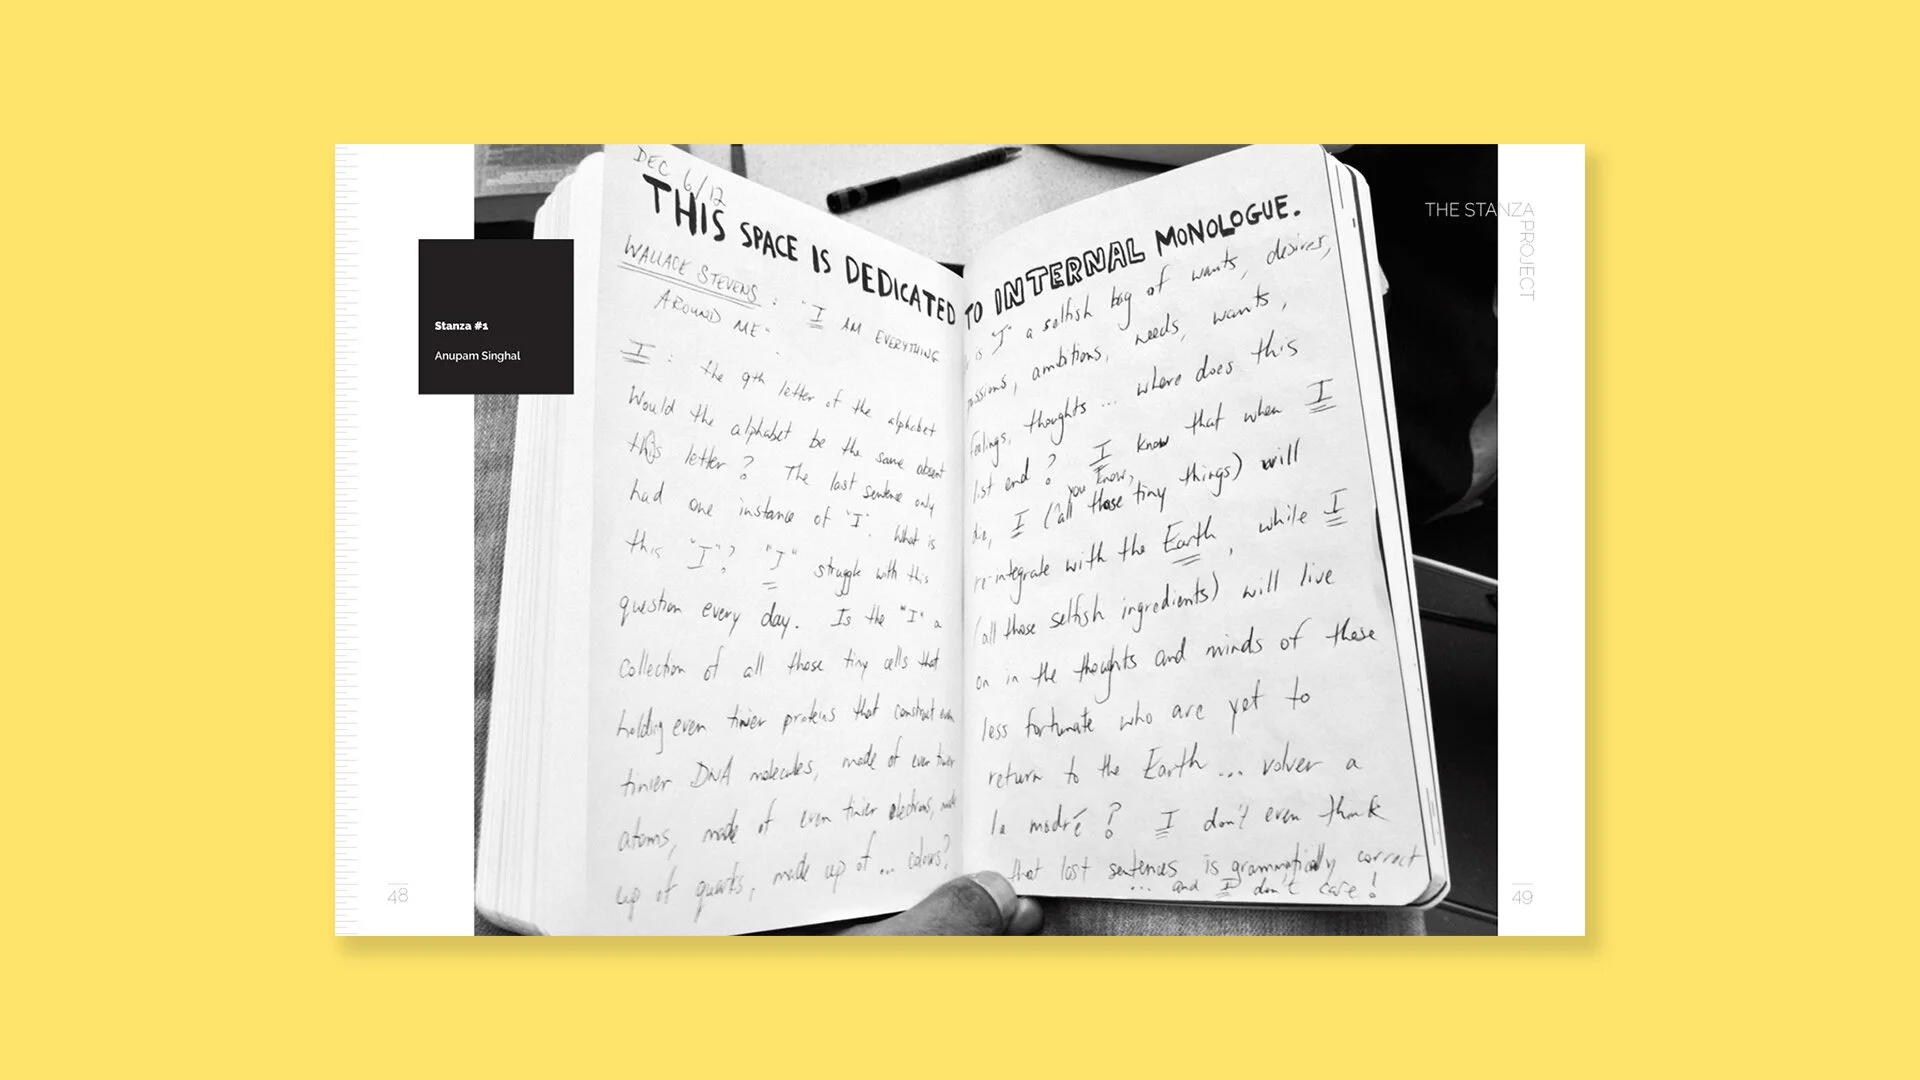 THE STANZA
PROJECT
Stanza #1
Anupam Singhal
DEC 6/12
THIS SPACE IS DEDICATED TO INTERNAL MONOLOGUE.
WALLACE STEVENS : "I AM EVERYTHING
AROUND ME"
I : the 9th letter of the alphabet
Would the alphabet be the same absent
this letter? The last sentence only
had one instance of "I". What is
this "I"? "I" struggle with this
question every day. Is the "I" a
collection of all those tiny cells that
holding even tinier proteins that construct even
tinier DNA molecules, made of even tinier
atoms, made of even tinier electrons, made
up of quarks, made up of ... colours?
is "I" a selfish bag of wants, desires,
passions, ambitions, needs, wants,
feelings, thoughts ... where does this
list end? I know that when I
you know,
die, I (all those tiny things) will
re-integrate with the Earth, while I
(all those selfish ingredients) will live
on in the thoughts and minds of those
less fortunate who are yet to
return to the Earth ... volver a
la madré? I don't even think
that last sentences is grammatically correct
... and I don't care!
48
49